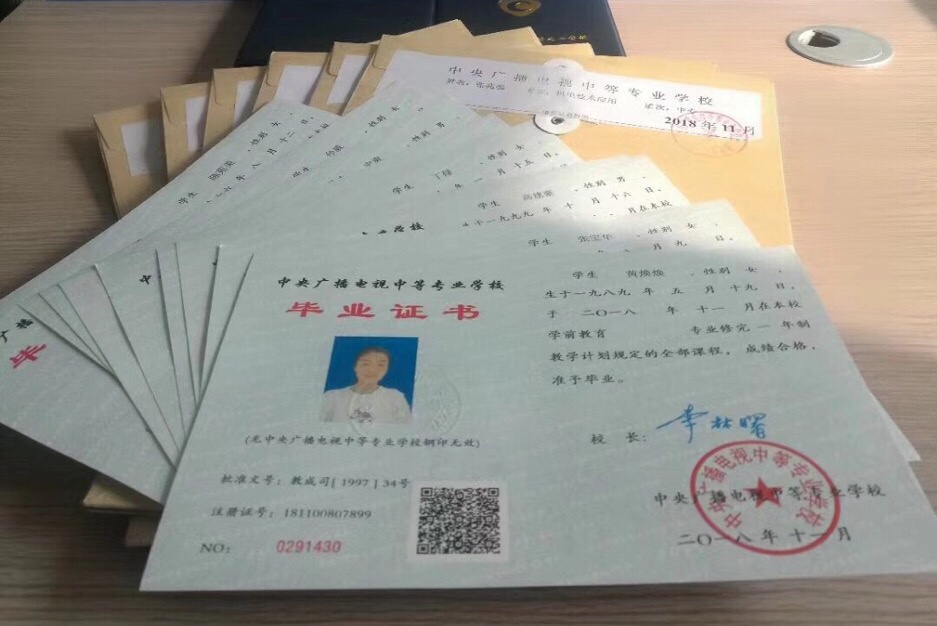 中央广播电视中等专业学校
2018年11月
学生 性别 女
性别
性别 男
学生 丁 性别 女
年 一 月 十五 日。
学生 性别 男
于一九九九 年 十 月 十六 日。
月在本校
学生 张宝华 性别 女
月 九 日。
广播
毕
中
中央广播电视中等专业学校
毕业证书
(无中央广播电视中等专业学校钢印无效)
批准文号：教成司[1997]34号
注册证号：181100807899
NO： 0291430
学生 黄焕焕 ，性别 女 ，
生于一九八九 年 五 月 十九 日，
于 二〇一八 年 十一 月在本校
学前教育 专业修完 一 年制
教学计划规定的全部课程，成绩合格，
准予毕业。
校 长： 李林曙
中央广播电视中等专业学校
二〇一八 年 十一 月
中央广播电视中等专业学校